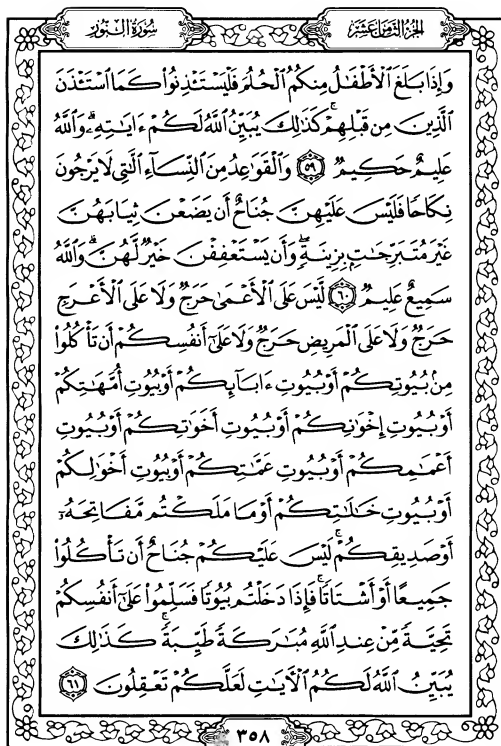 الجزء الثامن عشر
سورة النور
وَإِذَا بَلَغَ ٱلْأَطْفَـٰلُ مِنكُمُ ٱلْحُلُمَ فَلْيَسْتَـْٔذِنُوا۟ كَمَا ٱسْتَـْٔذَنَ
ٱلَّذِينَ مِن قَبْلِهِمْ ۚ كَذَٰلِكَ يُبَيِّنُ ٱللَّهُ لَكُمْ ءَايَـٰتِهِۦ ۗ وَٱللَّهُ
عَلِيمٌ حَكِيمٌ ٥٩ وَٱلْقَوَٰعِدُ مِنَ ٱلنِّسَآءِ ٱلَّـٰتِى لَا يَرْجُونَ
نِكَاحًا فَلَيْسَ عَلَيْهِنَّ جُنَاحٌ أَن يَضَعْنَ ثِيَابَهُنَّ
غَيْرَ مُتَبَرِّجَـٰتٍۭ بِزِينَةٍ ۖ وَأَن يَسْتَعْفِفْنَ خَيْرٌ لَّهُنَّ ۗ وَٱللَّهُ
سَمِيعٌ عَلِيمٌ ٦٠ لَّيْسَ عَلَى ٱلْأَعْمَىٰ حَرَجٌ وَلَا عَلَى ٱلْأَعْرَجِ
حَرَجٌ وَلَا عَلَى ٱلْمَرِيضِ حَرَجٌ وَلَا عَلَىٰٓ أَنفُسِكُمْ أَن تَأْكُلُوا۟
مِنۢ بُيُوتِكُمْ أَوْ بُيُوتِ ءَابَآئِكُمْ أَوْ بُيُوتِ أُمَّهَـٰتِكُمْ
أَوْ بُيُوتِ إِخْوَٰنِكُمْ أَوْ بُيُوتِ أَخَوَٰتِكُمْ أَوْ بُيُوتِ
أَعْمَـٰمِكُمْ أَوْ بُيُوتِ عَمَّـٰتِكُمْ أَوْ بُيُوتِ أَخْوَٰلِكُمْ
أَوْ بُيُوتِ خَـٰلَـٰتِكُمْ أَوْ مَا مَلَكْتُم مَّفَاتِحَهُۥٓ
أَوْ صَدِيقِكُمْ ۚ لَيْسَ عَلَيْكُمْ جُنَاحٌ أَن تَأْكُلُوا۟
جَمِيعًا أَوْ أَشْتَاتًا ۚ فَإِذَا دَخَلْتُم بُيُوتًا فَسَلِّمُوا۟ عَلَىٰٓ أَنفُسِكُمْ
تَحِيَّةً مِّنْ عِندِ ٱللَّهِ مُبَـٰرَكَةً طَيِّبَةً ۚ كَذَٰلِكَ
يُبَيِّنُ ٱللَّهُ لَكُمُ ٱلْـَٔايَـٰتِ لَعَلَّكُمْ تَعْقِلُونَ ٦١
٣٥٨